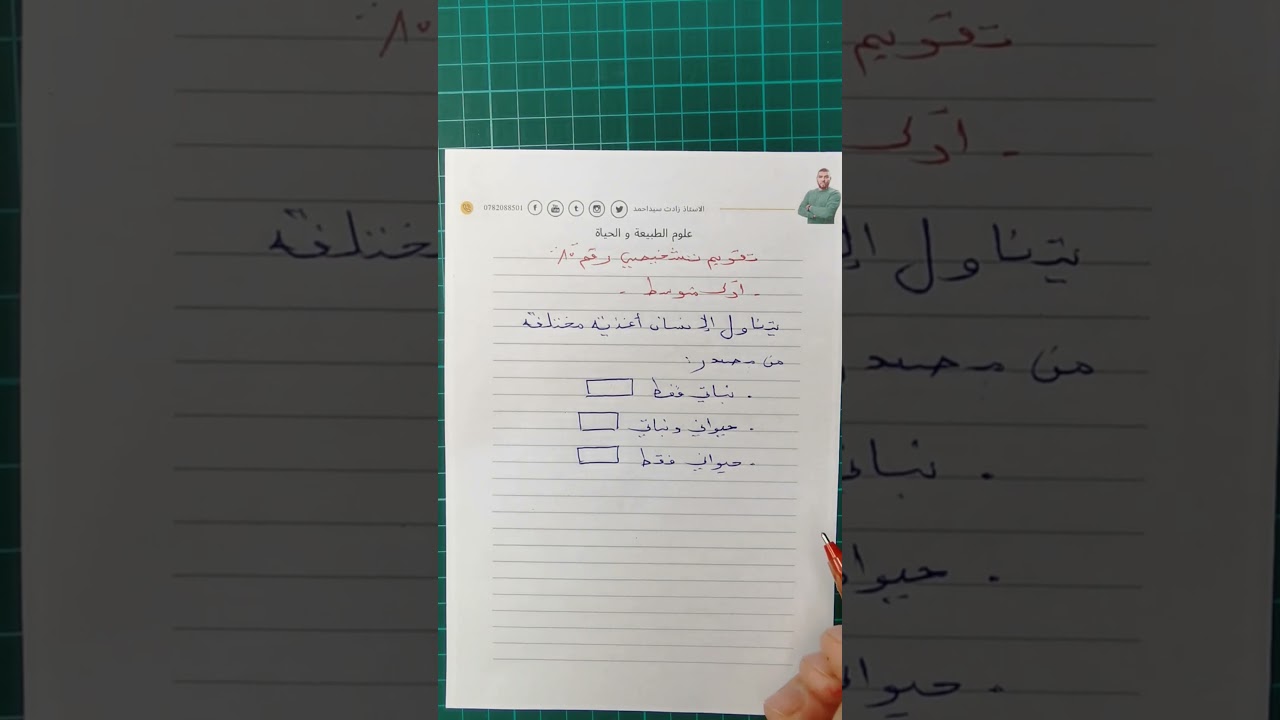 الاستاذ زادت سيداحمد 0782088501
علوم الطبيعة و الحياة
تقويم تشخيصي رقم
. أولى متوسط .
يتناول الإنسان أغذية مختلفة
من مصدر:
. نباتي فقط
. حيواني ونباتي
. حيواني فقط